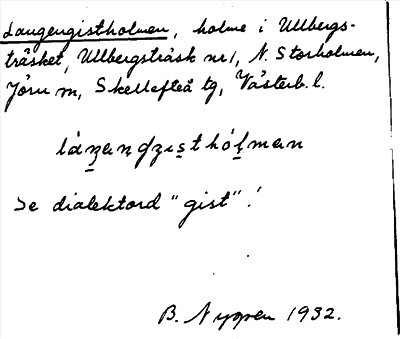 Laugengistholmen, holme i Ullbergs-
träsket, Ullbergsträsk nr 1, N. Storholmen,
Jörn sn, Skellefteå tg, Västerb. l.
Se dialektord "gist"!
B. Nygren 1932.